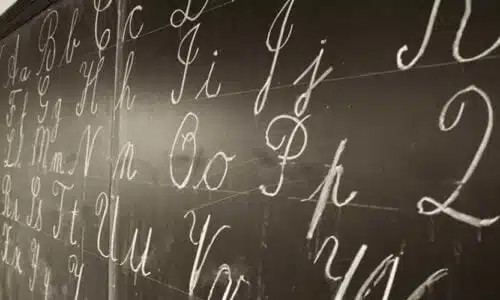 Aa Bb Cc D
Ff Gg Hh Ii Jj K
Ll Mm Nn Oo Pp Q
Rr Ss Tt Uu Vv W
Xx Yy